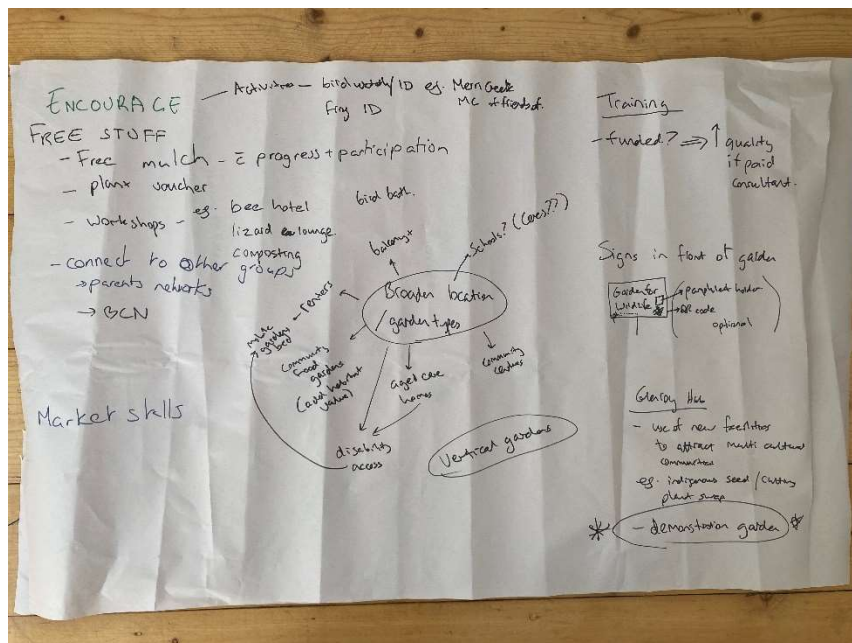 ENCOURAGE
— Activities — bird watch/ID eg. Merri Creek
MC + friends of.
frog ID
FREE STUFF
- Free mulch - c̄ progress + participation
- plant voucher
- workshops - eg. bee hotel
bird bath.
lizard lounge.
composting
- connect to other groups
→ parents networks
→ BCN
Market stalls
Broader location
/garden types
balcony+
Schools? (Ceres??)
renters
mobile
garden
bed
community
food
gardens
(add habitat
value)
aged care
homes
community
centres
disability
access
Vertical gardens
Training
- funded? ⇒ ↑ quality
if paid
consultant.
Signs in front of garden
Garden for
Wildlife
pamphlet holder
QR code
optional
Glenroy Hub
- use of new facilities
to attract multi cultural
communities
eg. indigenous seed/cutting
plant swap
* - demonstration garden *